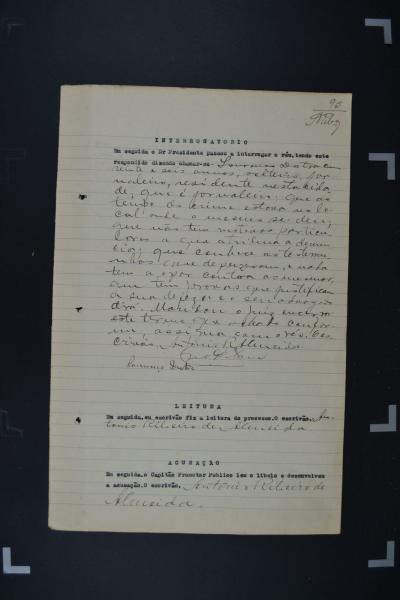 95
INTERROGATORIO
Em seguida o Dr Presidente passou a interrogar o réu, tendo este
respondido dizendo chamar-se Lourenço Dutra, com
vinte e seis annos, solteiro, jor-
naleiro, residente nesta cida-
de, que é jornaleiro; que ao
tempo do crime estava no lo-
cal onde o mesmo se deu;
que não tem motivos particu-
lares a que attribua a denun-
cia; que conhece as testemu-
nhas que depuzeram, e nada
tem a oppor contra as mesmas;
que tem provas que justificam
a sua defeza e o seu advogado
dirá. Mandou o juiz encerrar
este termo que achado confor-
me, assigna com o réo. Es-
crivão, Antonio R. Almeida
Lourenço Dutra
LEITURA
Em seguida, eu escrivão fiz a leitura do processo. O escrivão, An-
tonio Ribeiro de Almeida.
ACUSAÇÃO
Em seguida, o Capitão Promotor Publico leu o libelo e desenvolveu
a acusação. O escrivão, Antonio Ribeiro de
Almeida.